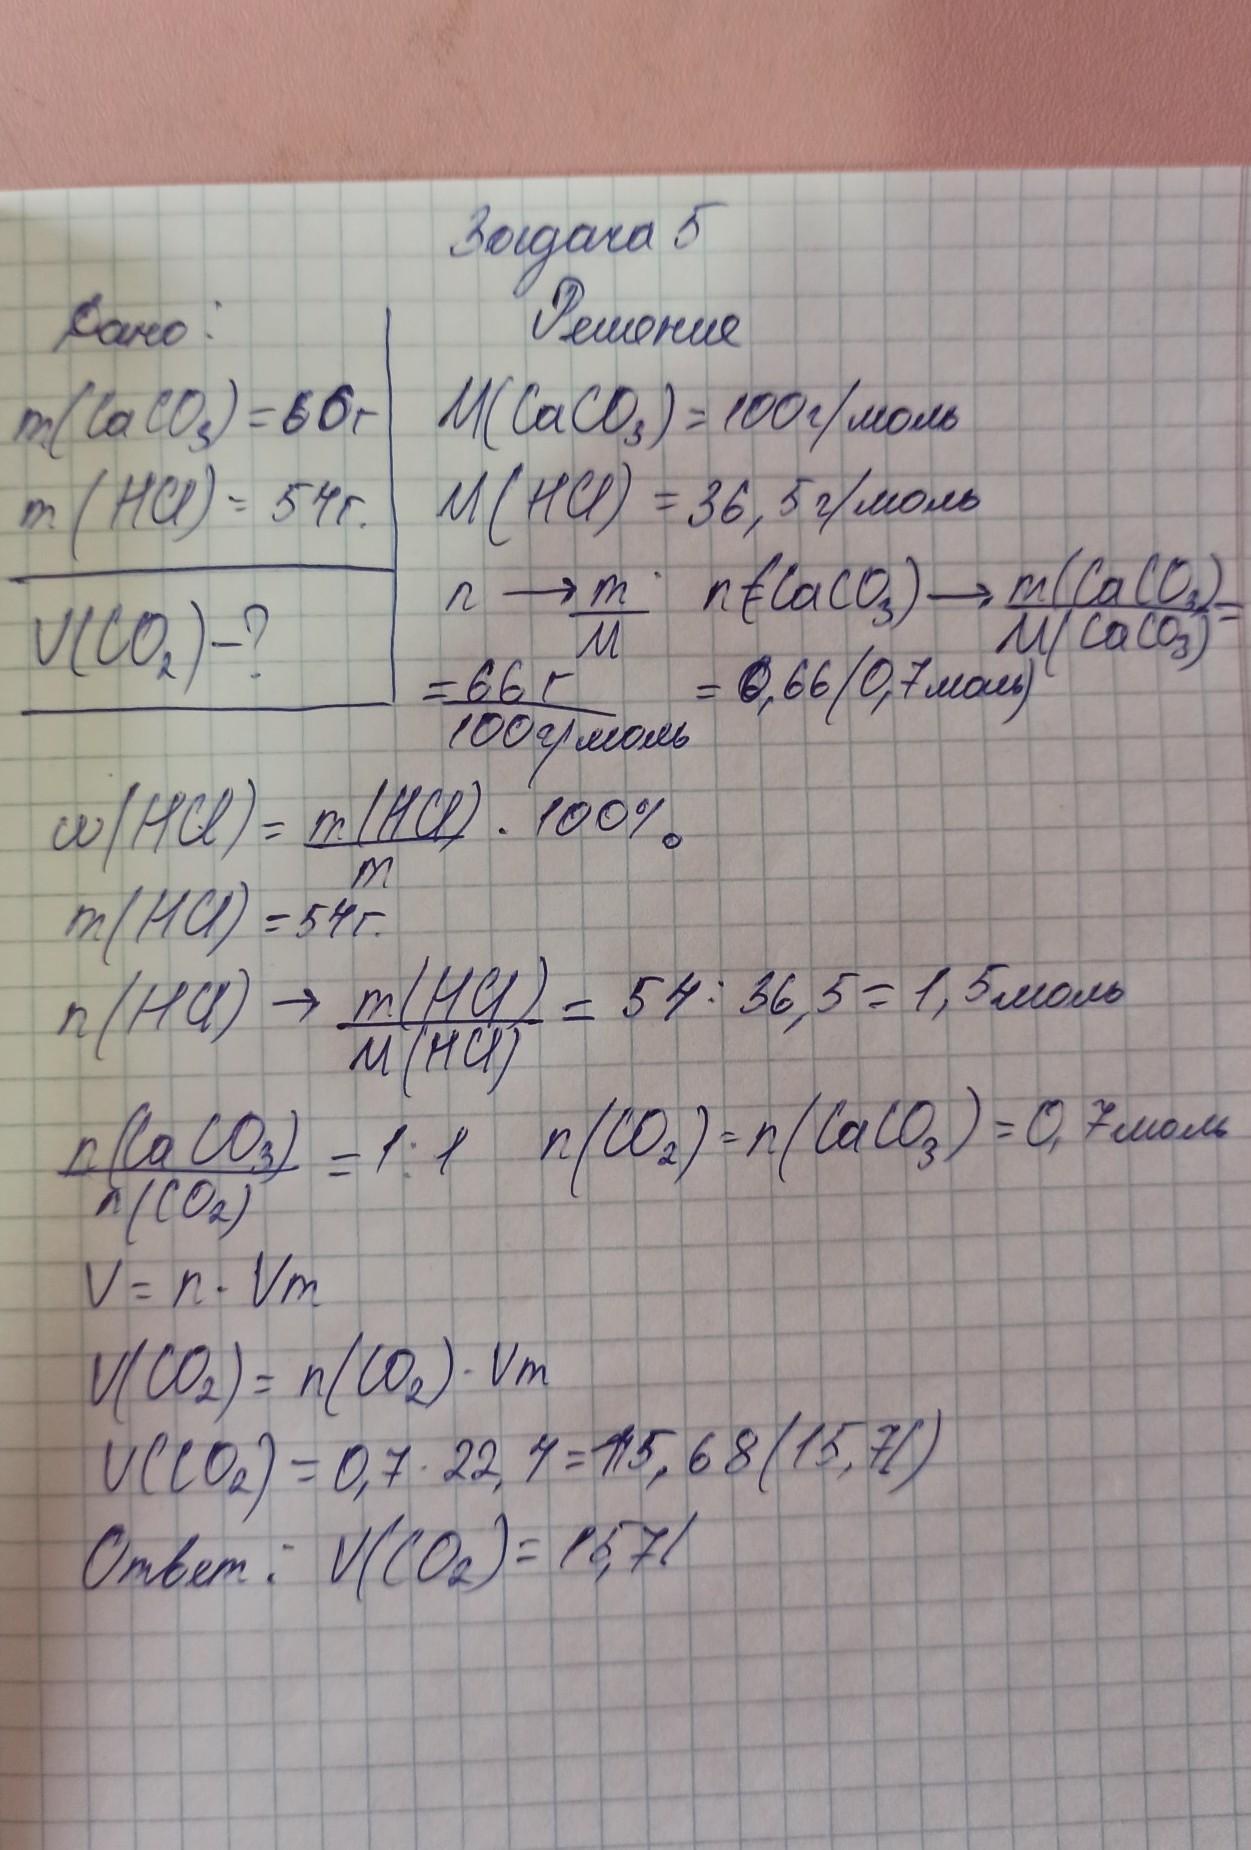 Задача 5
Дано:
m(CaCO₃)=66г
m(HCl)=54г.
V(CO₂)-?
Решение
M(CaCO₃)=100г/моль
M(HCl)=36,5г/моль
n → m/M n(CaCO₃) → m(CaCO₃)/M(CaCO₃) =
= 66 г/100г/моль = 0,66(0,7моль)
w(HCl)= m(HCl)/m · 100%
m(HCl)=54г.
n(HCl) → m(HCl)/M(HCl) = 54:36,5=1,5моль
n(CaCO₃)/n(CO₂) = 1:1 n(CO₂)=n(CaCO₃)=0,7моль
V=n·Vm
V(CO₂)=n(CO₂)·Vm
V(CO₂)=0,7·22,4=15,68(15,7l)
Ответ: V(CO₂)=15,7l